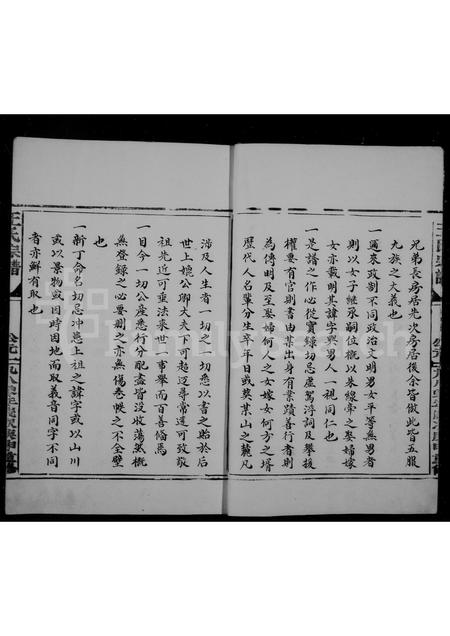 兄弟長房居先次房居後余皆倣此皆五服
九族之大義也
一邇來政制不同政治文明男女平等無男者
則以女子繼承嗣位概以朱線牽之娶婦嫁
女亦載明其諱字與男人一視同仁也
一是譜之作心從實錄切忌虛駕浮詞及攀援
權要有官則書由某出身有業蹟善行者則
為傳明及至娶婦何人之女嫁女何方之壻
歷代人名輩分生卒年日或葬某山之麓凡
涉及人生者一切之一切悉以書之貽於后
世上媲公卿大夫下可起迈尋常遠可致敬
祖先近可垂法來世一事舉而百善備焉
一日今一切公產悉行分配盡皆沒收蕩然概
無登錄之心要刪之亦無傷卷帙之不全壁
也
一新丁命名切忌冲患上祖之諱字或以山川
或以景物或因時因地而取義音同字不同
者亦鮮有取也
王氏宗譜